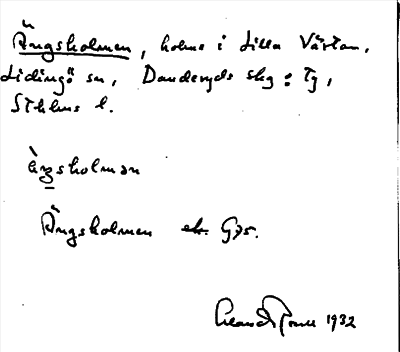 Ängsholmen, holme i Lilla Värtan,
Lidingö sn, Danderyds skg : Ty,
Sthlms l.
àngsholmən
Ängsholmen ek. G35.
1932